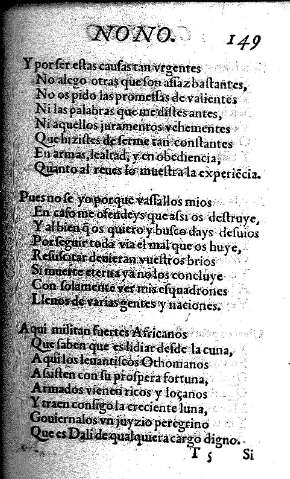 NONO. 149
Y por ser estas causas tan vrgentes
No alego otras que son assaz bastantes,
No os pido las promessas de valientes
Ni las palabras que me distes antes,
Ni aquellos juramentos vehementes
Que hizistes de serme tan constantes
En armas, lealtad, y en obediencia,
Quanto al reues lo muestra la experiēcia.
Pues no se yo porque vassallos mios
En caso me ofendeys que assi os destruye,
Y al biē q̃ os quiero y busco days desuios
Por seguir toda via el mal que os huye,
Resuscitar deuieran vuestros brios
Si muerte eterna ya no los concluye
Con solamente ver mis esquadrones
Llenos de varias gentes y naciones.
Aqui militan fuertes Africanos
Que saben que es lidiar desde la cuna,
Aqui los leuantiscos Othomanos
Assisten con su prospera fortuna,
Armados vienen ricos y loçanos
Y traen consigo la creciente luna,
Gouiernalos vn juyzio peregrino
Que es Dali de qualquiera cargo digno.
T 5 Si